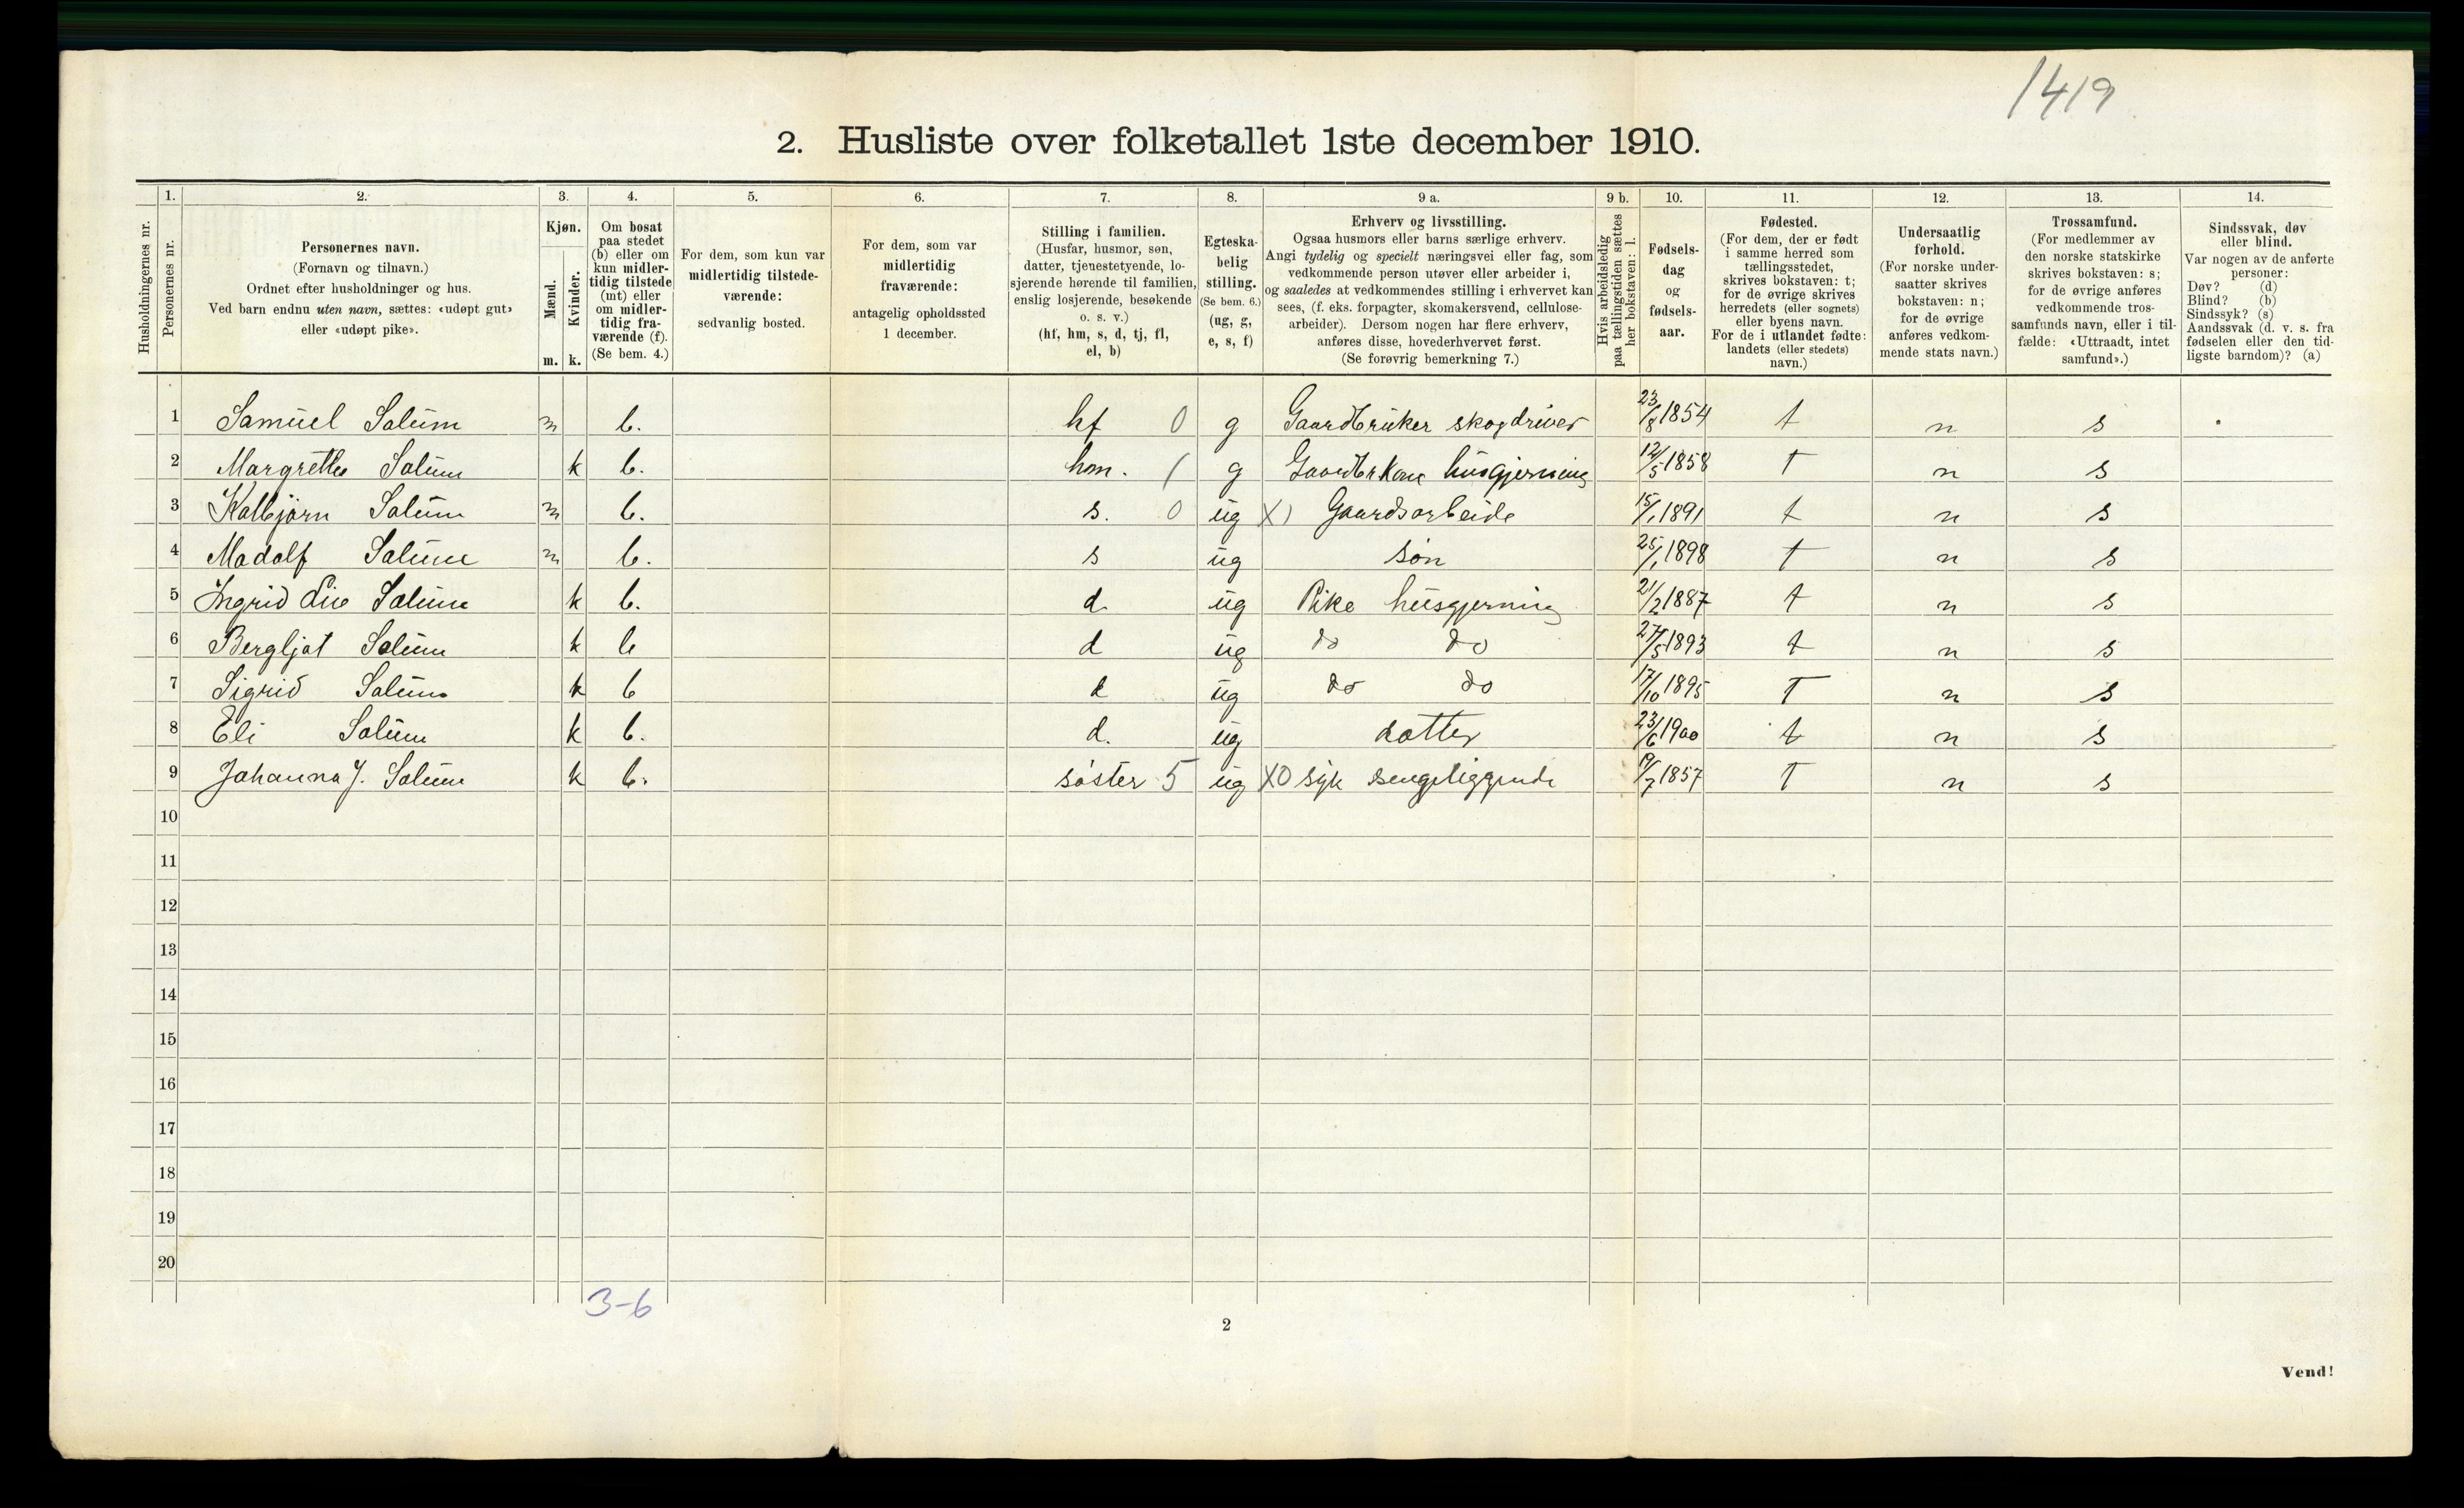 1419
2. Husliste over folketallet 1ste december 1910.
Husholdningernes nr.
1. Personernes nr.
2. Personernes navn.
(Fornavn og tilnavn.)
Ordnet efter husholdninger og hus.
Ved barn endnu uten navn, sættes: «udøpt gut»
eller «udøpt pike».
3. Kjøn.
Mænd. m.
Kvinder. k.
4. Om bosat
paa stedet
(b) eller om
kun midler-
tidig tilstede
(mt) eller
om midler-
tidig fra-
værende (f).
(Se bem. 4.)
5. For dem, som kun var
midlertidig tilstede-
værende:
sedvanlig bosted.
6. For dem, som var
midlertidig
fraværende:
antagelig opholdssted
1 december.
7. Stilling i familien.
(Husfar, husmor, søn,
datter, tjenestetyende, lo-
sjerende hørende til familien,
enslig losjerende, besøkende
o. s. v.)
(hf, hm, s, d, tj, fl,
el, b)
8. Egteska-
belig
stilling.
(Se bem. 6.)
(ug, g,
e, s, f)
9 a. Erhverv og livsstilling.
Ogsaa husmors eller barns særlige erhverv.
Angi tydelig og specielt næringsvei eller fag, som
vedkommende person utøver eller arbeider i,
og saaledes at vedkommendes stilling i erhvervet kan
sees, (f. eks. forpagter, skomakersvend, cellulose-
arbeider). Dersom nogen har flere erhverv,
anføres disse, hovederhvervet først.
(Se forøvrig bemerkning 7.)
9 b. Hvis arbeidsledig
paa tællingstiden sættes
her bokstaven: l.
10. Fødsels-
dag
og
fødsels-
aar.
11. Fødested.
(For dem, der er født
i samme herred som
tællingsstedet,
skrives bokstaven: t;
for de øvrige skrives
herredets (eller sognets)
eller byens navn.
For de i utlandet fødte:
landets (eller stedets)
navn.)
12. Undersaatlig
forhold.
(For norske under-
saatter skrives
bokstaven: n;
for de øvrige
anføres vedkom-
mende stats navn.)
13. Trossamfund.
(For medlemmer av
den norske statskirke
skrives bokstaven: s;
for de øvrige anføres
vedkommende tros-
samfunds navn, eller i til-
fælde: «Uttraadt, intet
samfund».)
14. Sindssvak, døv
eller blind.
Var nogen av de anførte
personer:
Døv? (d)
Blind? (b)
Sindssyk? (s)
Aandssvak (d. v. s. fra
fødselen eller den tid-
ligste barndom)? (a)
1 Samuel Solum m b. hf 0 g Gaardbruker skogdriver 23/8 1854 t n s
2 Margrethe Solum k b. hm. 1 g Gaardbr kone husgjerning 12/5 1858 t n s
3 Kolbjørn Solum m b. s. 0 ug X) Gaardsarbeide 15/1 1891 t n s
4 Madolf Solum m b. s ug søn 25/1 1898 t n s
5 Ingrid Solum k b. d ug Pike husgjerning 21/2 1887 t n s
6 Bergljot Solum k b d ug do do 27/5 1893 t n s
7 Sigrid Solum k b d ug do do 17/10 1895 T n s
8 Eli Solum k b. d. ug datter 23/6 1900 t n s
9 Johanna J. Solum k b. søster 5 ug XO syk sengeliggende /7 1857 T n s
10
11
12
13
14
15
16
17
18
19
20
3-6
2
Vend!